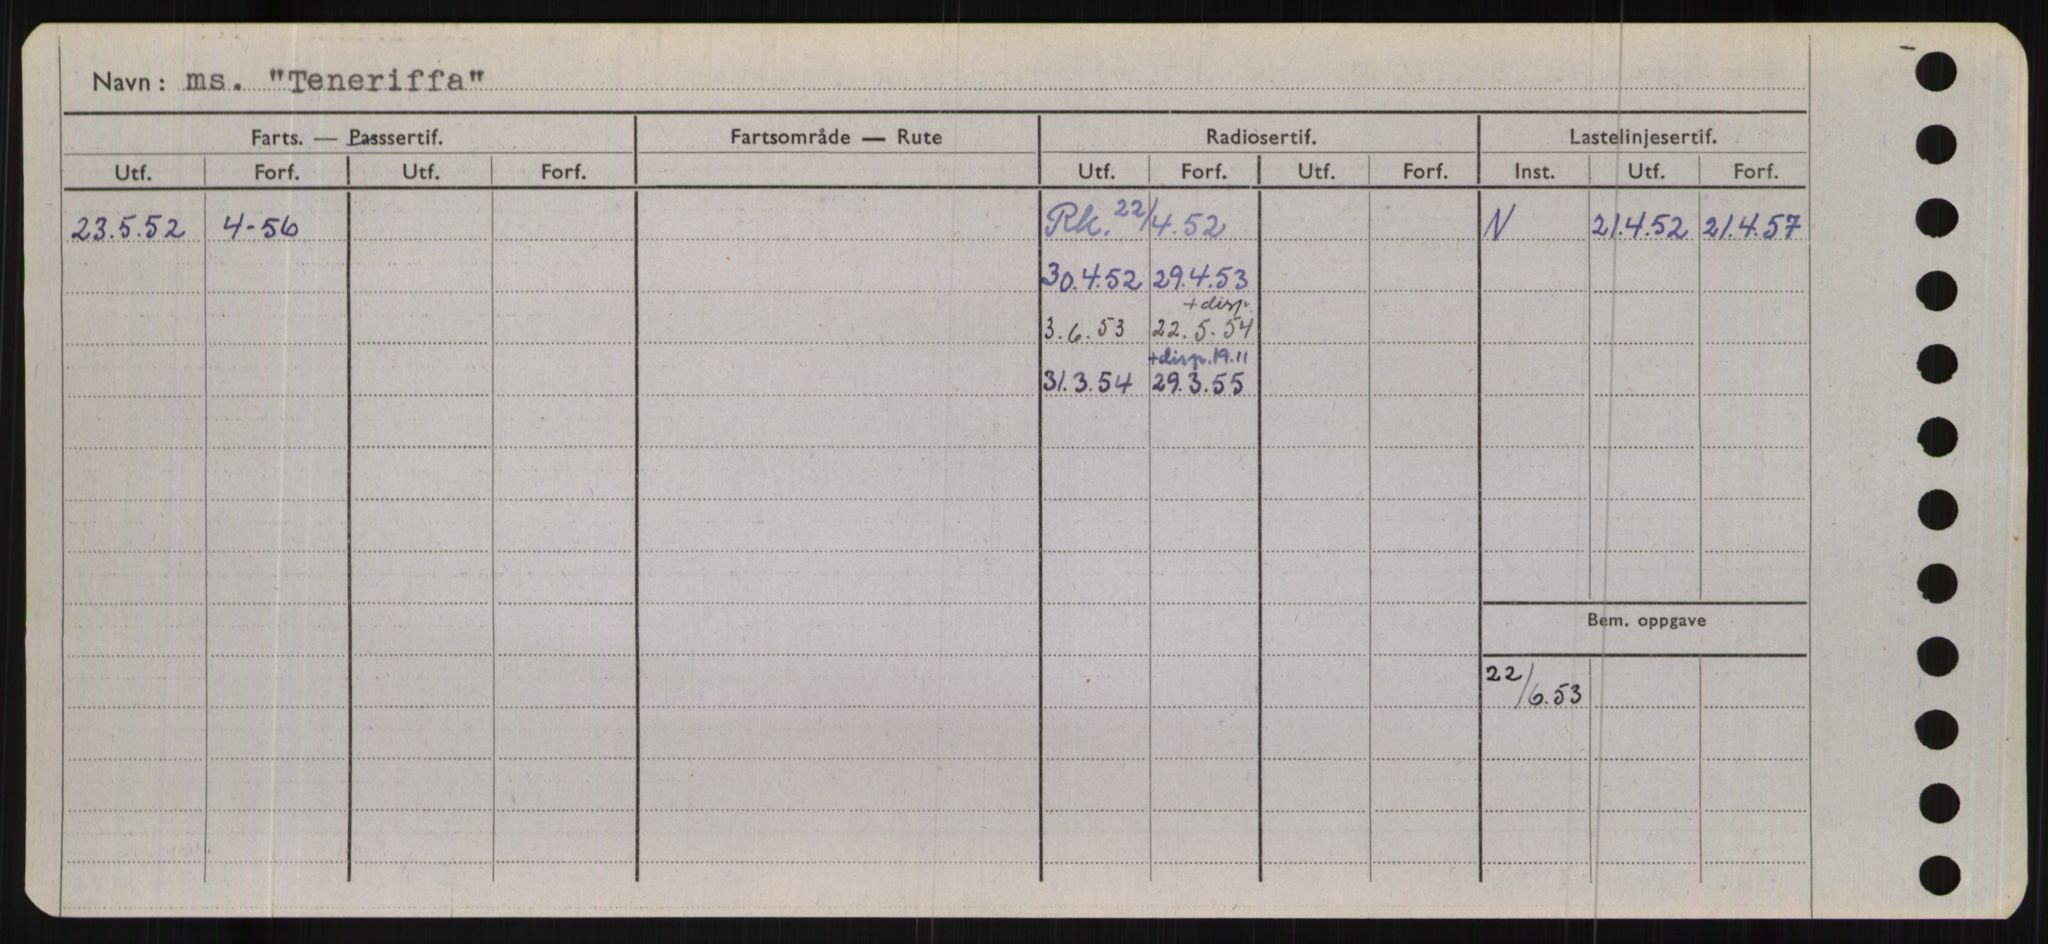 Navn: ms. "Teneriffa"
Farts. — Passsertif. Fartsområde — Rute Radiosertif. Lastelinjesertif.
Utf. Forf. Utf. Forf. Utf. Forf. Utf. Forf. Inst. Utf. Forf.
23.5.52 4-56 Rk. 22/4.52 N 21.4.52 21.4.57
30.4.52 29.4.53
+disp.
3.6.53 22.5.54
+disp.19.11
31.3.54 29.3.55
Bem. oppgave
22/6.53